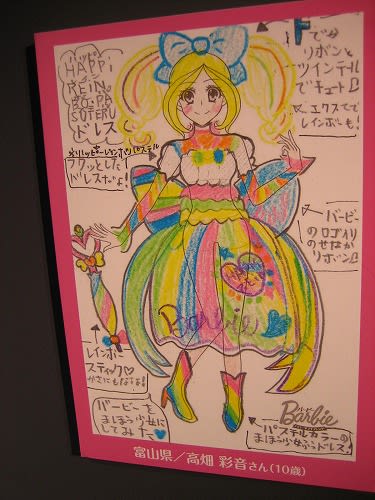 ハッピー
HAPPI
REIN
BO・PA
SUTERU
ドレス
※ハッピーレインボーパステル
フワッとした
ドレスだよ!
で
リボンと
ツインテール
でキュート♡
エクステで
レインボーも!
バービー
のロゴ入り
のせなか
リボン♡
Barbie
レインボー
スティック♡
かさにもなるよ!
バービーを
まほう少女に
してみた💙
Barbie
パステルカラーの
まほう少女ふうドレス!
富山県／高畑 彩音さん(10歳)